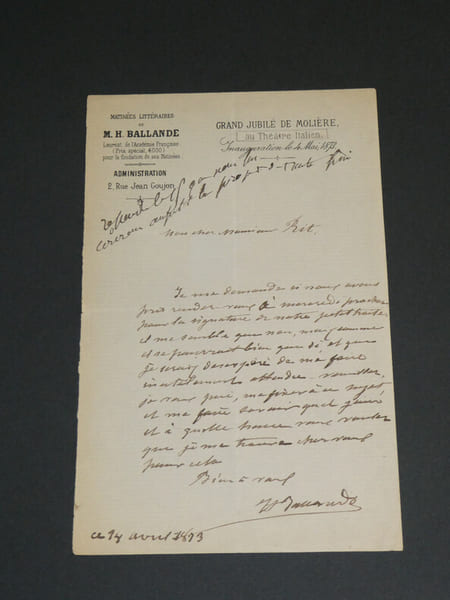 MATINÉES LITTÉRAIRES
DE
M. H. BALLANDE
Lauréat de l'Académie Française
(Prix spécial, 4000)
pour la fondation de ses Matinées
ADMINISTRATION
2, Rue Jean Goujon
GRAND JUBILÉ DE MOLIÈRE,
au Théâtre Italien.
Inauguration le 4 Mai 1873.
Mon cher Monsieur Rit.
Je me demande si nous avons
pris rendez vous à mercredi prochain
pour la signature de notre petit traité
il me semble que non, mais comme
il se pourrait bien que si et que
je serais désespéré de me faire
attendre, veuillez,
je vous prie, me fixer à ce sujet
et me faire savoir quel jour
et à quelle heure vous voulez
que je me trouve chez vous
pour cela
Bien à vous
H Ballande
ce 14 avril 1873